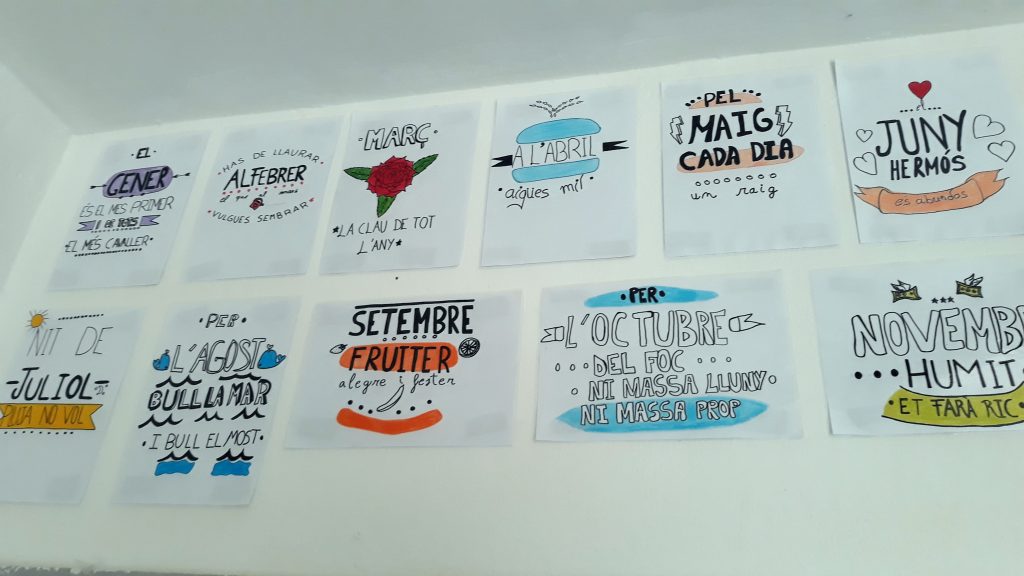 EL
GENER
ÉS EL MES PRIMER
I DE TOTS
EL MÉS CAVALLER
HAS DE LLAURAR
ALFEBRER
VULGUES SEMBRAR
MARÇ
LA CLAU DE TOT
L'ANY
A L'ABRIL
aigües mil
PEL
MAIG
CADA DIA
un raig
JUNY
HERMÓS
es abundos
NIT DE
JULIOL
PLUJA NO VOL
PER
L'AGOST
BULL LA MAR
I BULL EL MOST
SETEMBRE
FRUITER
alegre i fester
PER
L'OCTUBRE
DEL FOC
NI MASSA LLUNY
NI MASSA PROP
NOVEMB
HUMIT
ET FARÀ RIC